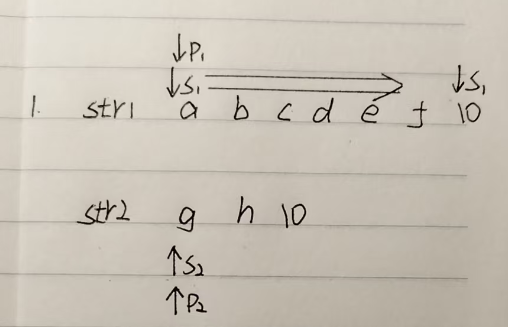 ↓P₁
↓S₁ ↓S₁
1. str1 a b c d e f \0
str2 g h \0
↑S₂
↑P₂